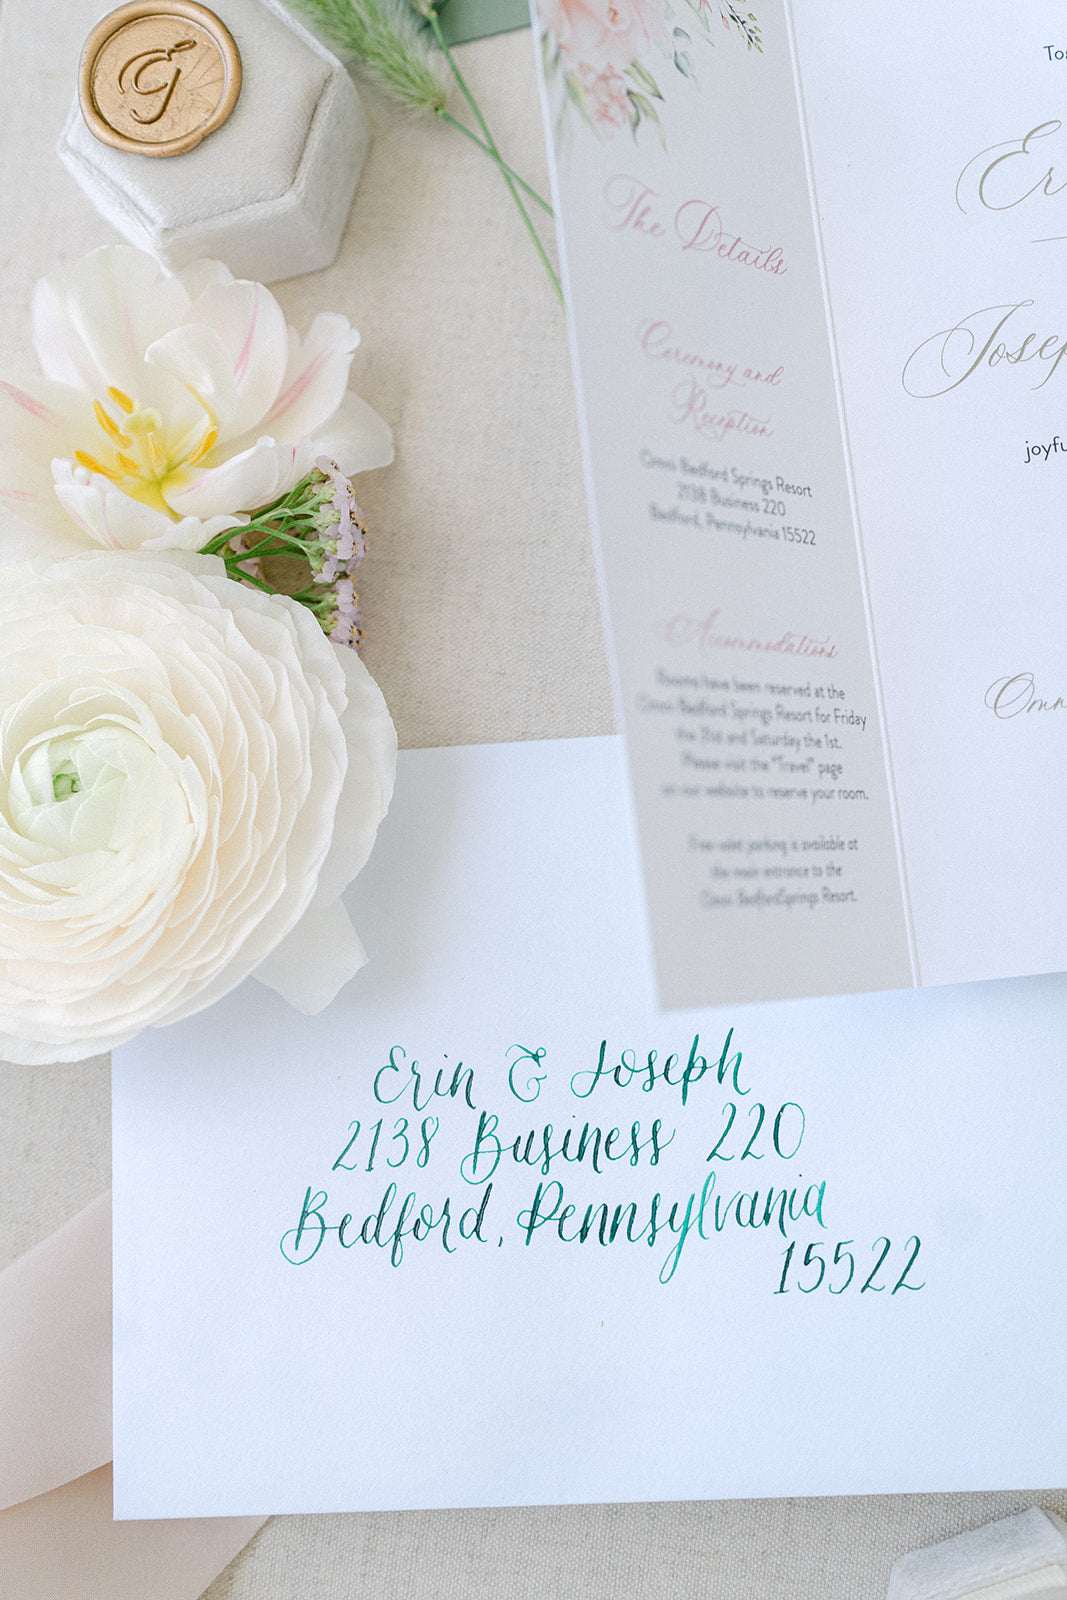 G
The Details
Ceremony and
Reception
Omni Bedford Springs Resort
2138 Business 220
Bedford, Pennsylvania 15522
Accommodations
Rooms have been reserved at the
Omni Bedford Springs Resort for Friday
the 31st and Saturday the 1st.
Please visit the "Travel" page
on our website to reserve your room.
Free valet parking is available at
the main entrance to the
Omni BedfordSprings Resort.
Er
Josep
joyfu
Omn
Erin & Joseph
2138 Business 220
Bedford, Pennsylvania
15522